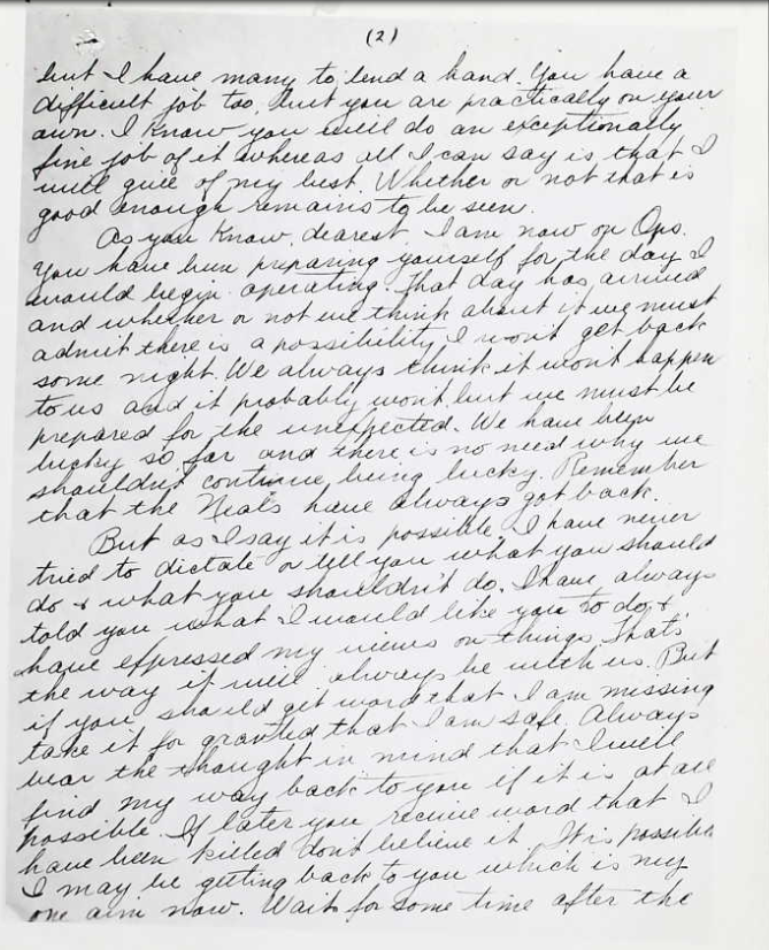 (2)
but I have many to lend a hand. You have a
difficult job too, but you are practically on your
own. I know you will do an exceptionally
fine job of it whereas all I can say is that I
will give of my best. Whether or not that is
good enough remains to be seen.
As you know, dearest I am now on Ops.
You have been preparing yourself for the day I
would begin operating. That day has arrived
and whether or not we think about it we must
admit there is a possibility I won't get back
some night. We always think it wont happen
to us and it probably wont but we must be
prepared for the unexpected. We have been
lucky so far and there is no need why we
shouldn't continue being lucky. Remember
that the Neals have always got back.
But as I say it is possible. I have never
tried to dictate or tell you what you should
do & what you shouldn't do. I have always
told you what I would like you to do &
have expressed my views on things. That's
the way it will always be with us. But
if you should get word that I am missing
take it for granted that I am safe. Always
bear the thought in mind that I will
find my way back to you if it is at all
possible. If later you receive word that I
have been killed don't believe it. It is possible
I may be getting back to you which is my
one aim now. Wait for some time after the